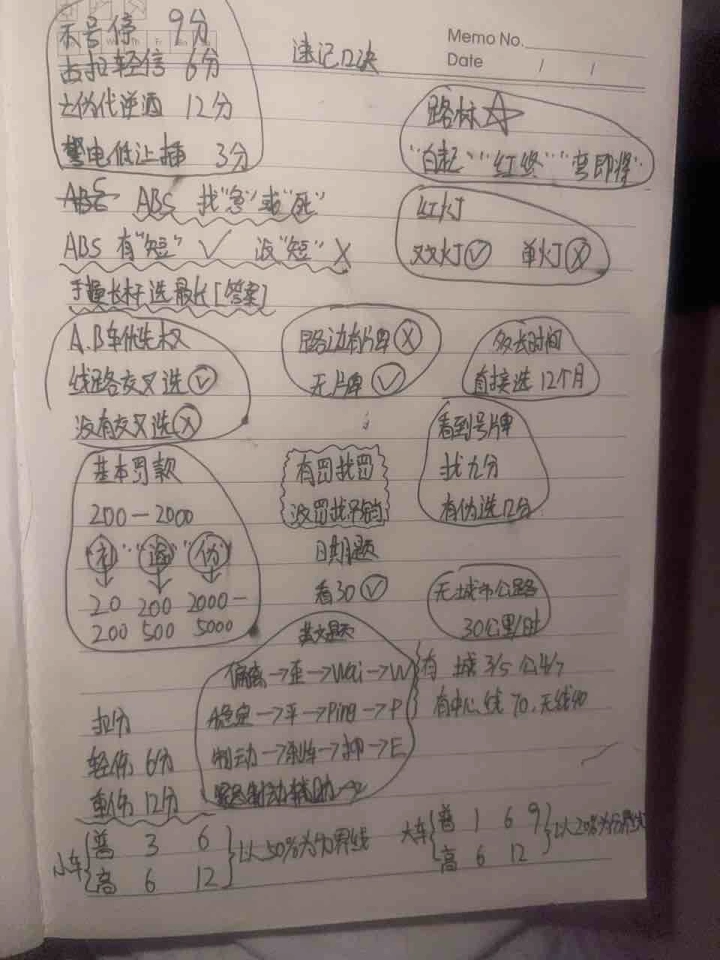 Memo No.
Date / /
速记口决
不号停 9分
占扣轻信 6分
士伪代逆酒 12分
警电低让插 3分
路标☆
"白起" "红终" "弯即得"
ABS ABS 找"急"或"死"
ABS 有"短" ✓ 没"短" X
红灯
双灯✓ 单灯X
手握长杆选最长[答案]
A.B车优先权
线路交叉选✓
没有交叉选X
路边有牌X
无牌✓
多长时间
直接选12个月
看到号牌
找九分
有伪选12分
基本罚款
200-2000
20 200 2000-
200 500 5000
有罚找罚
没罚找吊销
日期题
看30✓
无城市公路
30公里/时
英文题
偏离→歪→Wai→W
稳定→平→Ping→P
制动→刹车→抻→E
紧急制动辅助→
有 城3/5 公4/7
有中心线70,无线40
扣分
轻伤 6分
重伤 12分
小车{普 3 6
高 6 12}以50%为分界线
大车{普 1 6 9
高 6 12}以20%为分界线